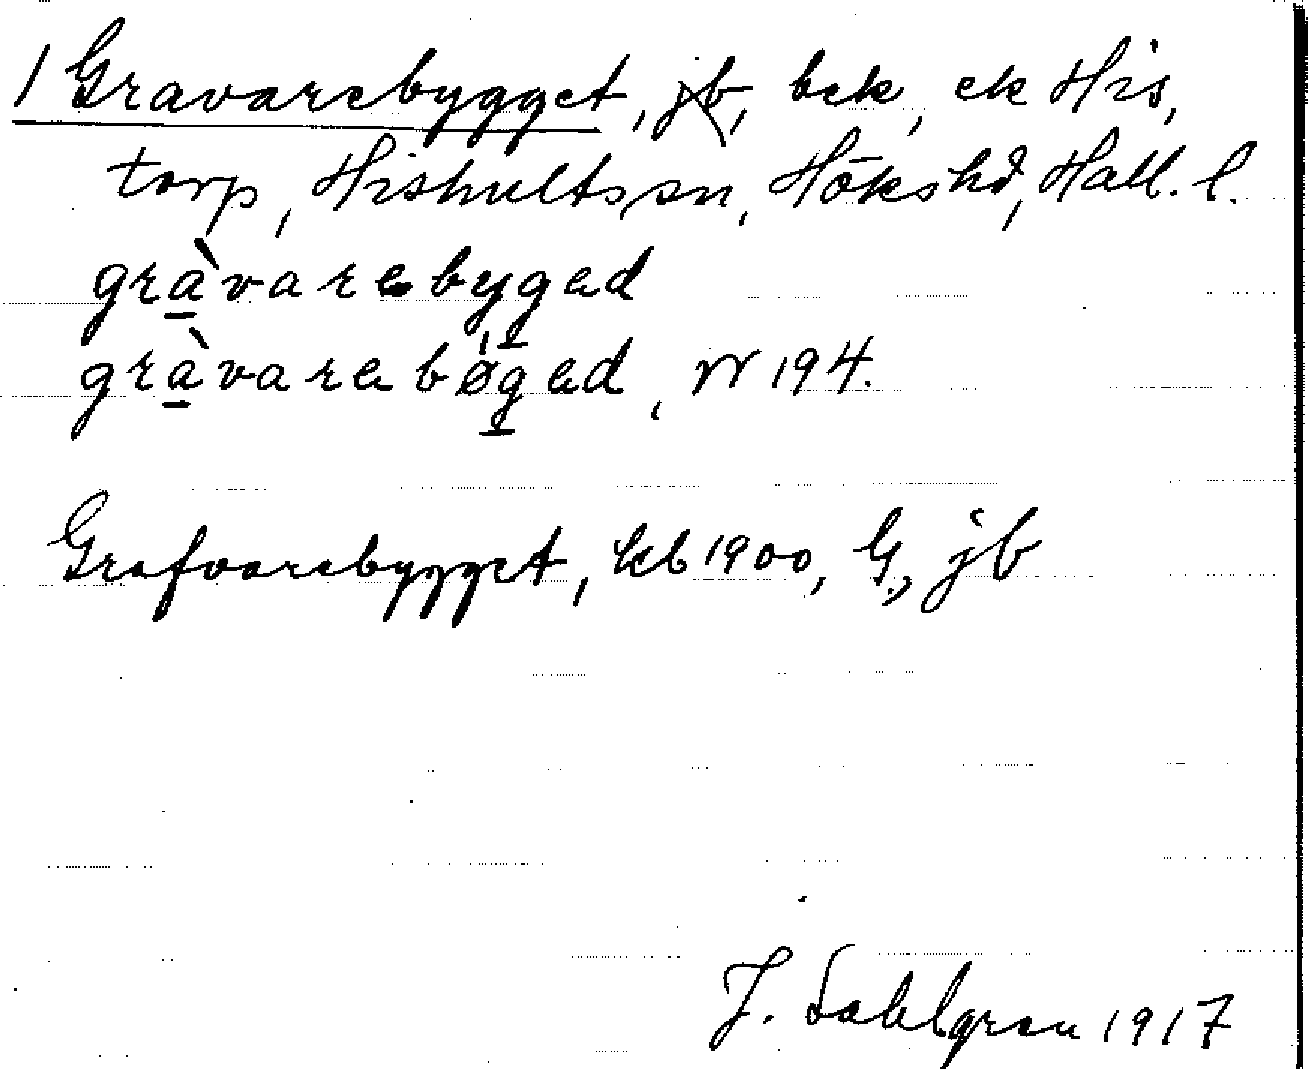 1 Gravarebygget, jb, bek, ek His,
torp, Hishults sn, Höks hd, Hall. l.
gràvarebyged
gràvarebøged, N 194.
Grafvarebygget, kb 1900, G., jb
J. Sahlgren 1917